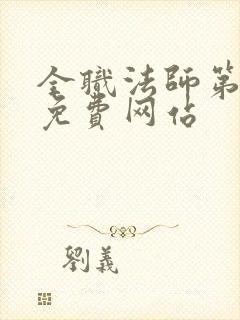 全職法師第
免費网佔
劉義